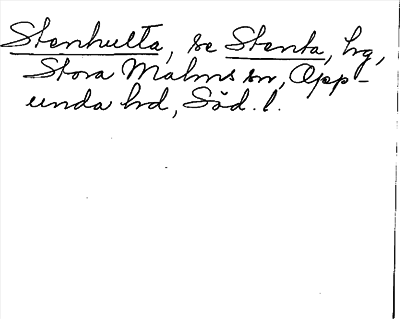 Stenhulta, se Stenta, hg,
Stora Malms sn, Opp-
unda hd, Söd. l.